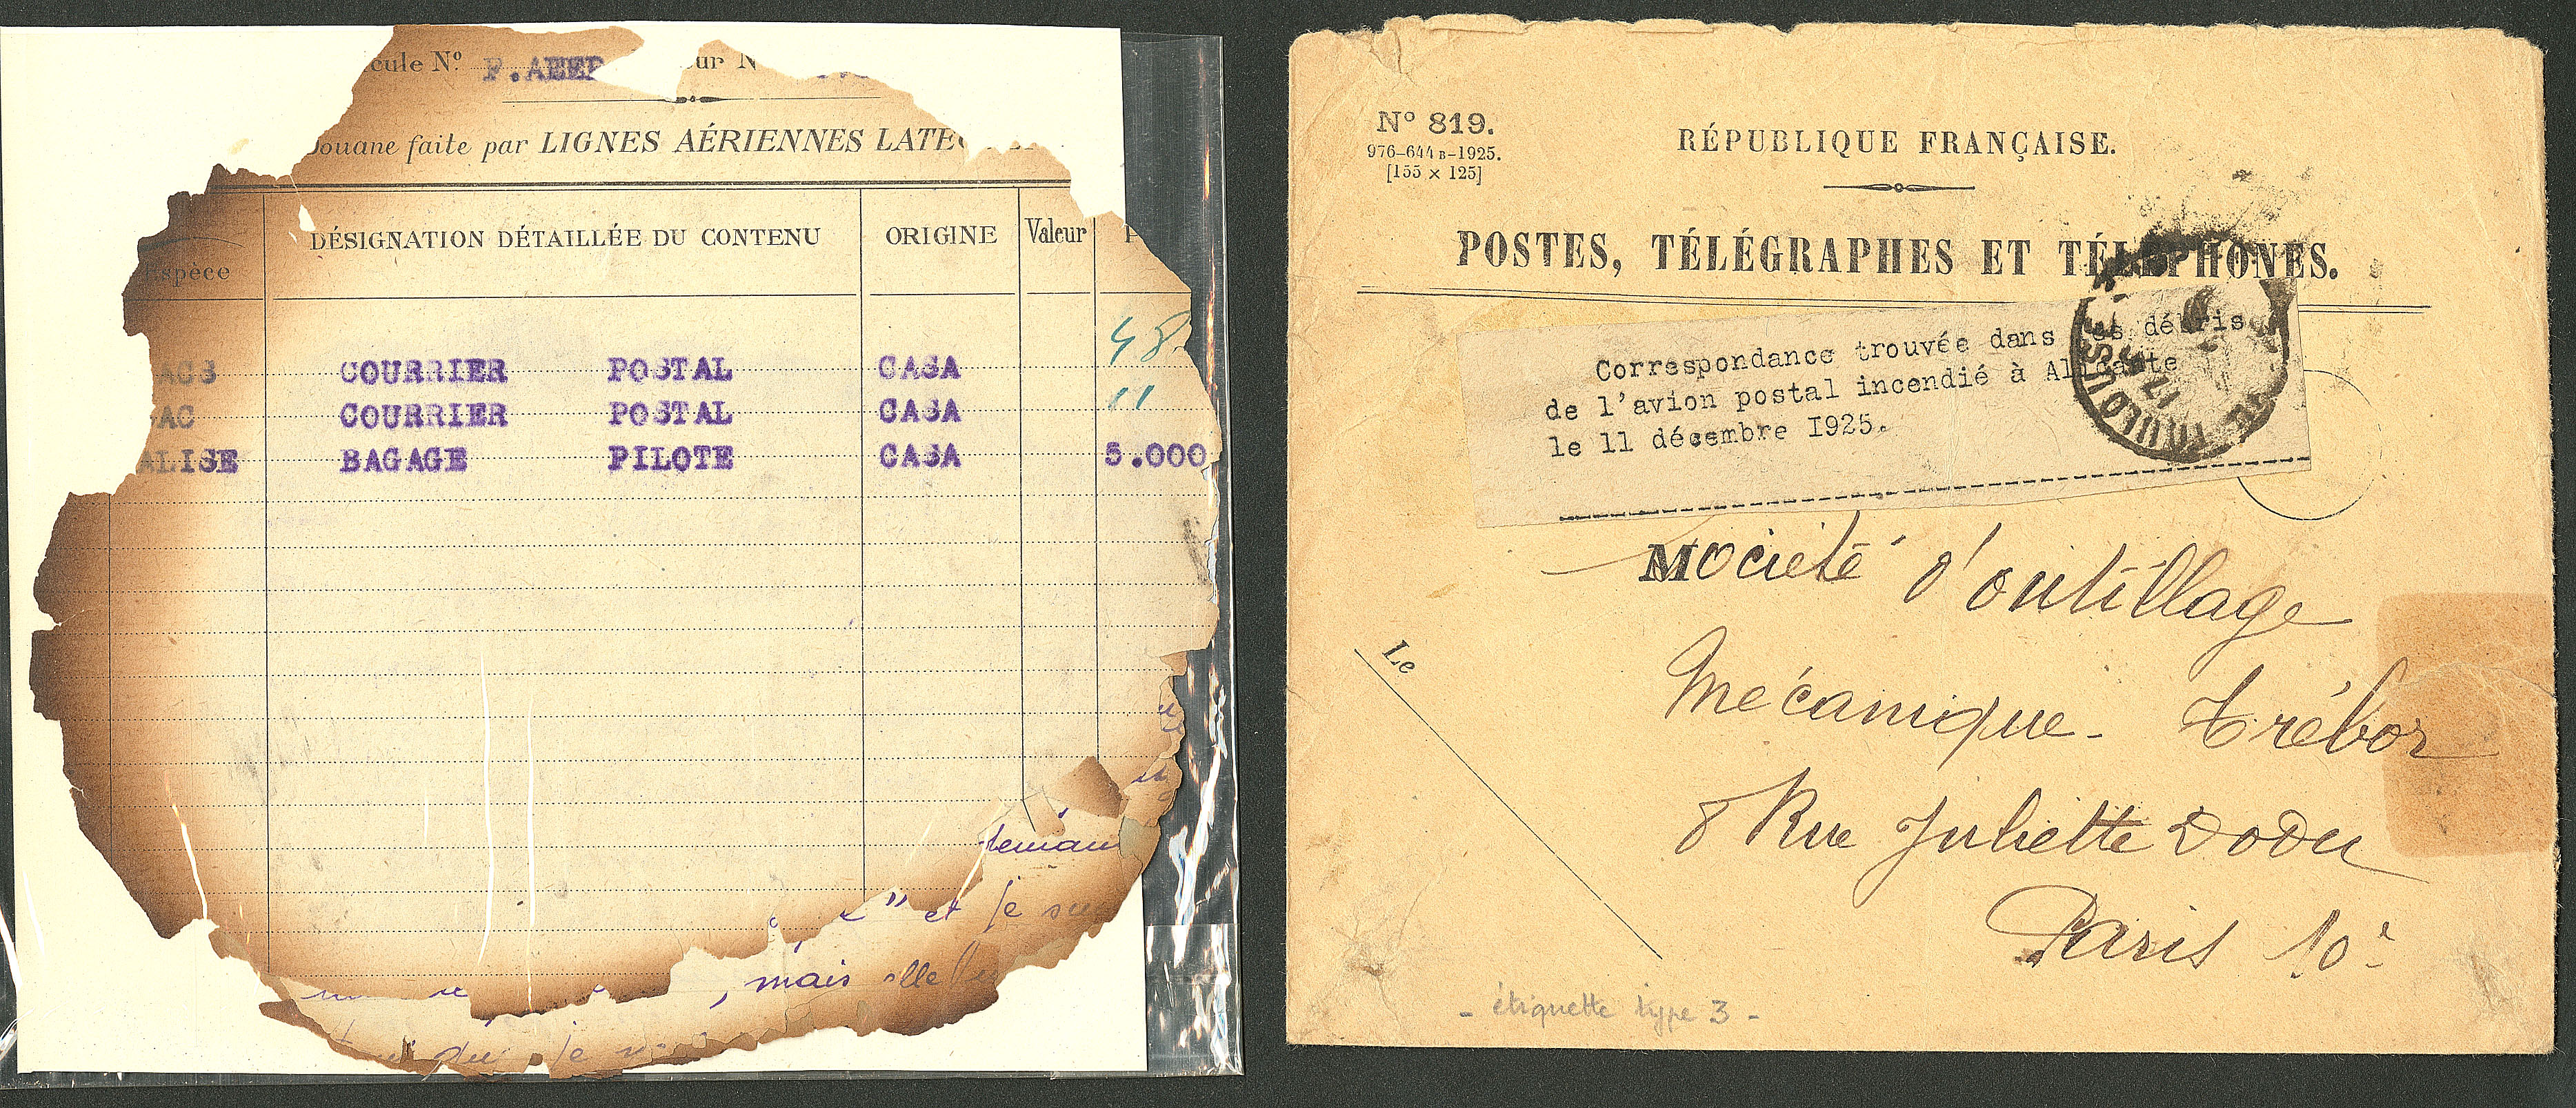 cule Nº F.AEEP ur N
Douane faite par LIGNES AÉRIENNES LATEC
Espèce
DÉSIGNATION DÉTAILLÉE DU CONTENU
ORIGINE
Valeur
P
48.
ACS COURRIER POSTAL CASA
11
AC COURRIER POSTAL CASA
ALISE BAGAGE PILOTE CASA 5.000
" et je
, mais elle
du je
Nº 819.
976-644 B-1925.
[155 × 125]
RÉPUBLIQUE FRANÇAISE.
POSTES, TÉLÉGRAPHES ET TÉLÉPHONES.
Correspondance trouvée dans les débris
de l'avion postal incendié à Alicante
le 11 décembre 1925.
TOULOUSE
M
ociété d'outillage
Mécanique - Trébor
8 Rue Juliette Dodu
Paris 10e
Le
- étiquette type 3 -